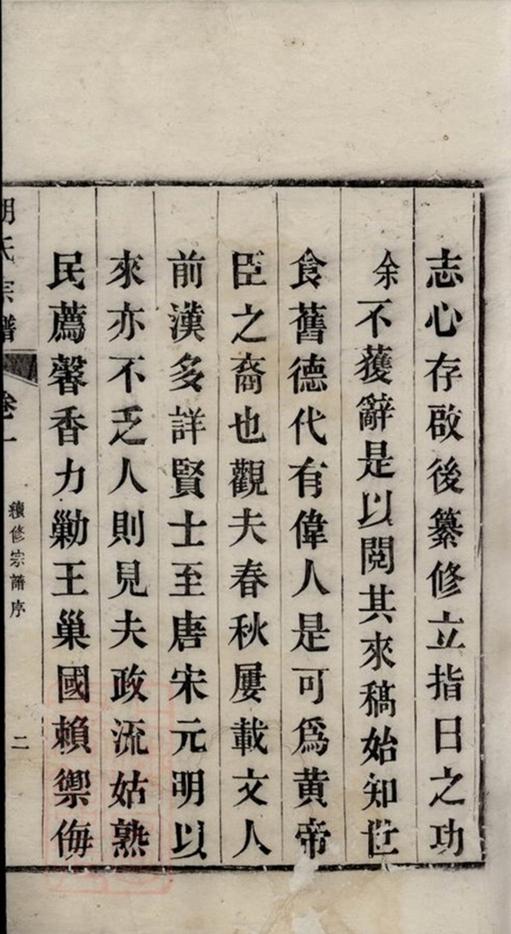 志心存啟後纂修立指日之功
余不獲辭是以閱其來稿始知世
食舊德代有偉人是可為黃帝
臣之裔也觀夫春秋屢載文人
前漢多詳賢士至唐宋元明以
來亦不乏人則見夫政流姑熟
民薦馨香力勦王巢國賴禦侮
胡氏宗譜 卷一 續修宗譜序 二